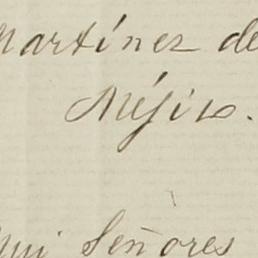 Martínez de
Méjico.
Señores